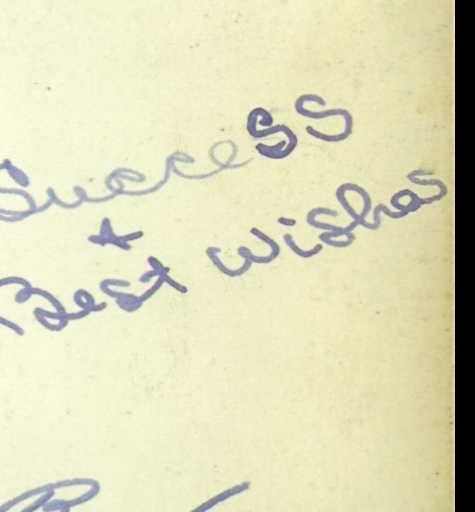 Success
+
Best Wishes